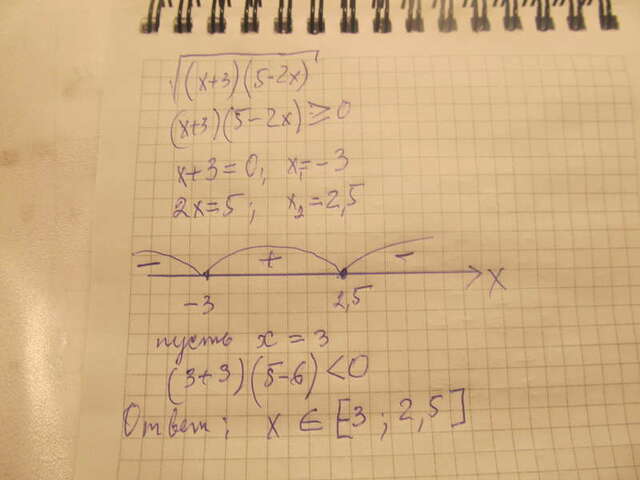 √(x+3)(5-2x)
(x+3)(5-2x) ≥ 0
x+3=0; x₁=-3
2x=5; x₂=2,5
- + -
-3 2,5 X
пусть x = 3
(3+3)(5-6) < 0
Ответ; x ∈ [3; 2,5]